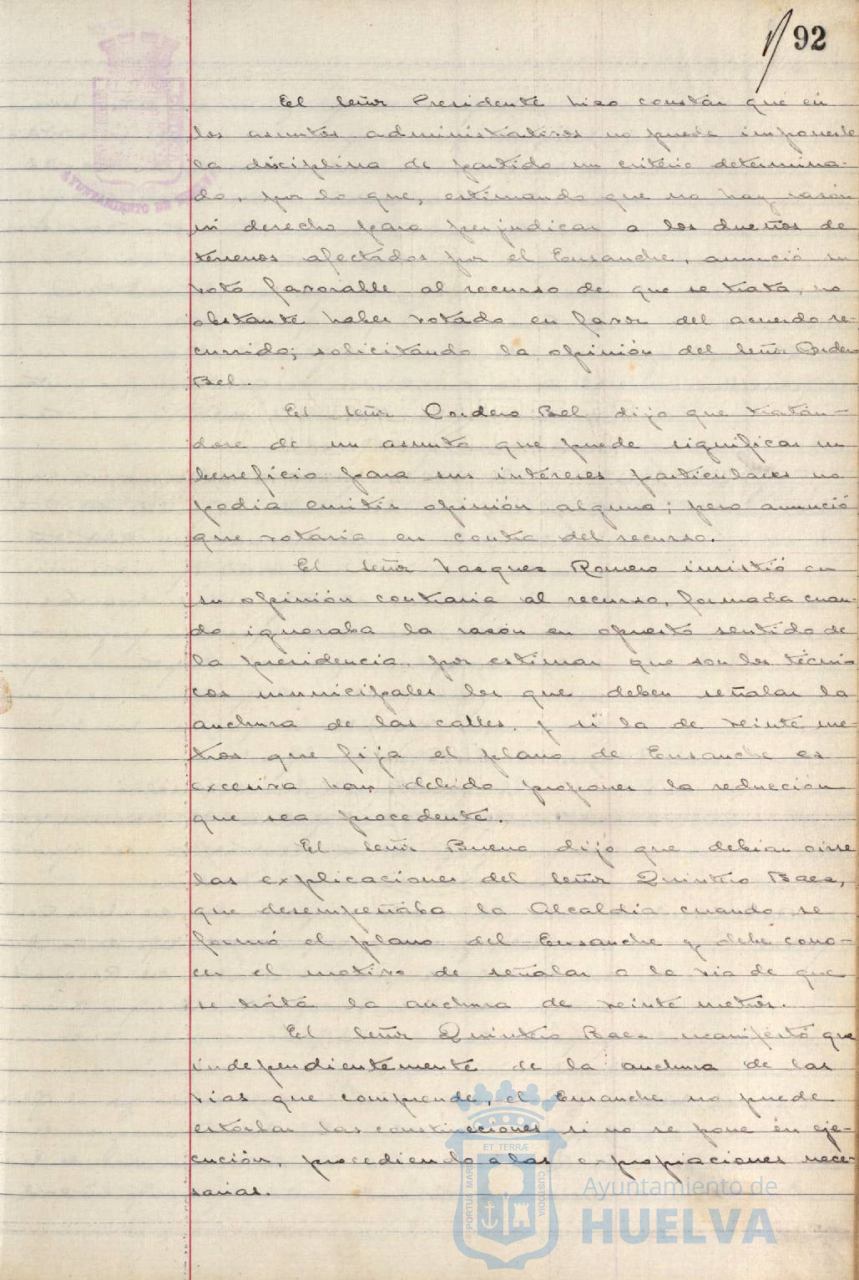 92
El Señor Presidente hizo constar que en
los asuntos administrativos no puede imponerle
la disciplina de partido un criterio determina-
do, por lo que, estimando que no hay razón
ni derecho para perjudicar a los dueños de
terrenos afectados por el Ensanche, anunció su
voto favorable al recurso de que se trata, no
obstante haber votado en favor del acuerdo re-
currido; solicitando la opinión del Señor Cordero
Bel.
El Señor Cordero Bel dijo que tratán-
dose de un asunto que puede significar un
beneficio para sus intereses particulares no
podia emitir opinión alguna; pero anunció
que votaria en contra del recurso.
El Señor Vazquez Romero insistió en
su opinión contraria al recurso, formada cuan-
do ignoraba la razón en opuesto sentido de
la presidencia, por estimar que son los técni-
cos municipales los que deben señalar la
anchura de las calles, y si la de veinte me-
tros que fija el plano de Ensanche es
excesiva han debido proponer la reducción
que sea procedente.
El Señor Bueno dijo que debian oirse
las explicaciones del Señor Quintero Baez,
que desempeñaba la Alcaldía cuando se
formó el plano del Ensanche y debe cono-
cer el motivo de señalar a la via de que
se trata la anchura de veinte metros.
El Señor Quintero Baez manifestó que
independientemente de la anchura de las
vias que comprende, el Ensanche no puede
estorbar las construcciones si no se pone en eje-
cución, procediendo a las expropiaciones nece-
sarias.
AYUNTAMIENTO DE HUELVA
PORTUS MARIS ET TERRÆ CUSTODIA
Ayuntamiento de
HUELVA